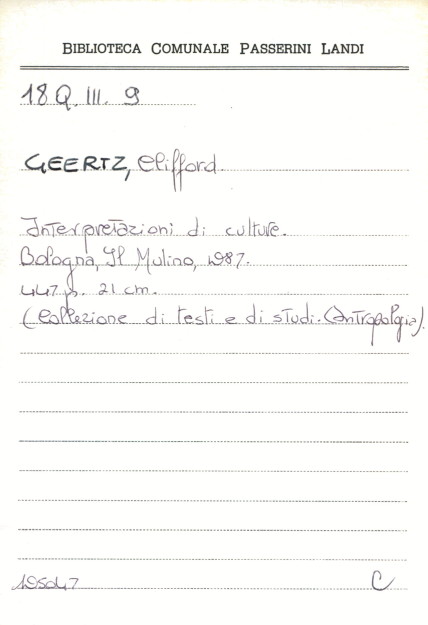 BIBLIOTECA COMUNALE PASSERINI LANDI
18 Q. III. 9
GEERTZ, Clifford.
Interpretazioni di culture.
Bologna, Il Mulino, 1987.
447 p. 21 cm.
(Collezione di testi e di studi. Antropologia).
C